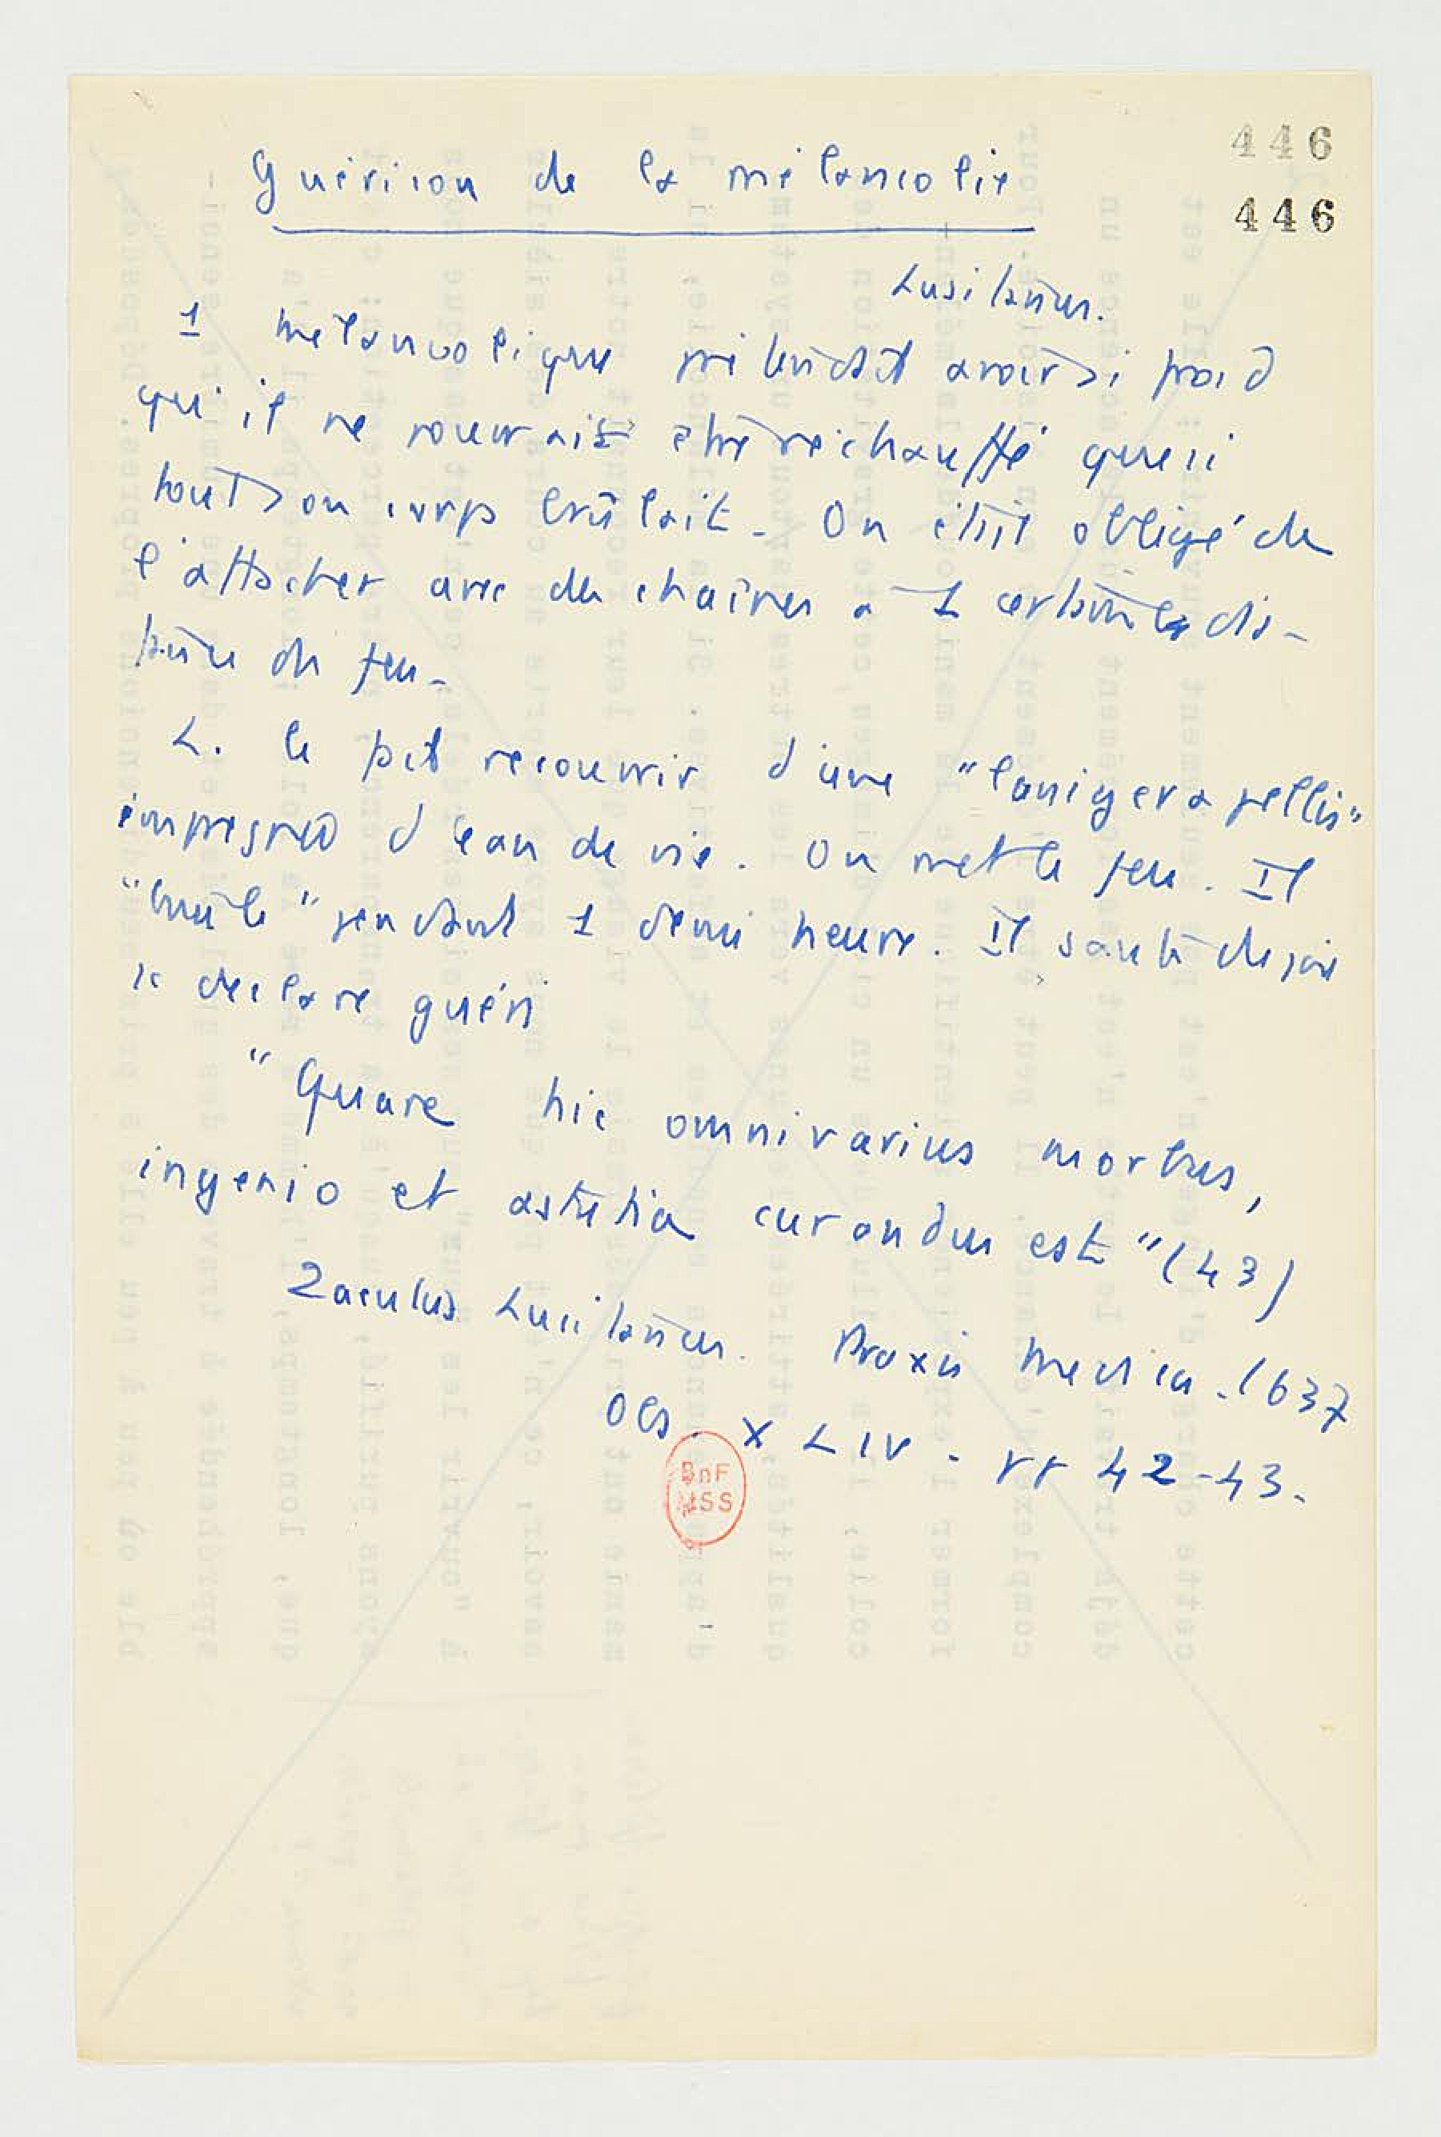 446
446
Guérison de la mélancolie
Lusitanus.
1 mélancolique prétendait avoir si froid
qu'il ne pouvait être réchauffé que si
tout son corps brûlait. On était obligé de
l'attacher avec des chaînes à 1 certaine dis-
tance du feu.
L. le fit recouvrir d'une "lanigera pellis"
imprégnée d'eau de vie. On met le feu. Il
"brûle" pendant 1 demi heure. Il saute de joie
se déclare guéri
"Quare hic omnivarius morbus,
ingenio et astutia curandus est" (43)
Zacutus Lusitanus. Praxis medica. 1637
Obs. XLIV. pp 42-43.
BnF
MSS